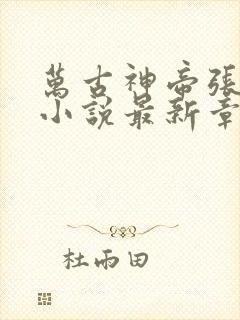 萬古神帝張
小說最新章
杜雨田